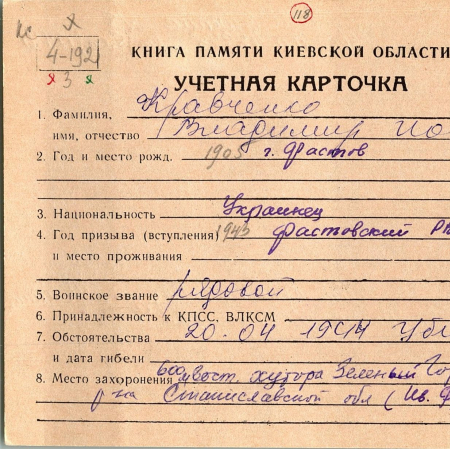 118
4-192
3
КНИГА ПАМЯТИ КИЕВСКОЙ ОБЛАСТИ
УЧЕТНАЯ КАРТОЧКА
1. Фамилия, Кравченко
имя, отчество Владимир Ио
2. Год и место рожд. 1905 г. Фастов
3. Национальность Украинец
4. Год призыва (вступления) 1943 Фастовский РВ
и место проживания
5. Воинское звание рядовой
6. Принадлежность к КПСС, ВЛКСМ
7. Обстоятельства 20.04 1944 Уби
и дата гибели
8. Место захоронения 600 м вост. хутора Зеленый Го
р-на Станиславской обл (Ив. Ф